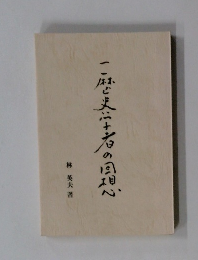 一歴史学者の回想
林 英夫 著